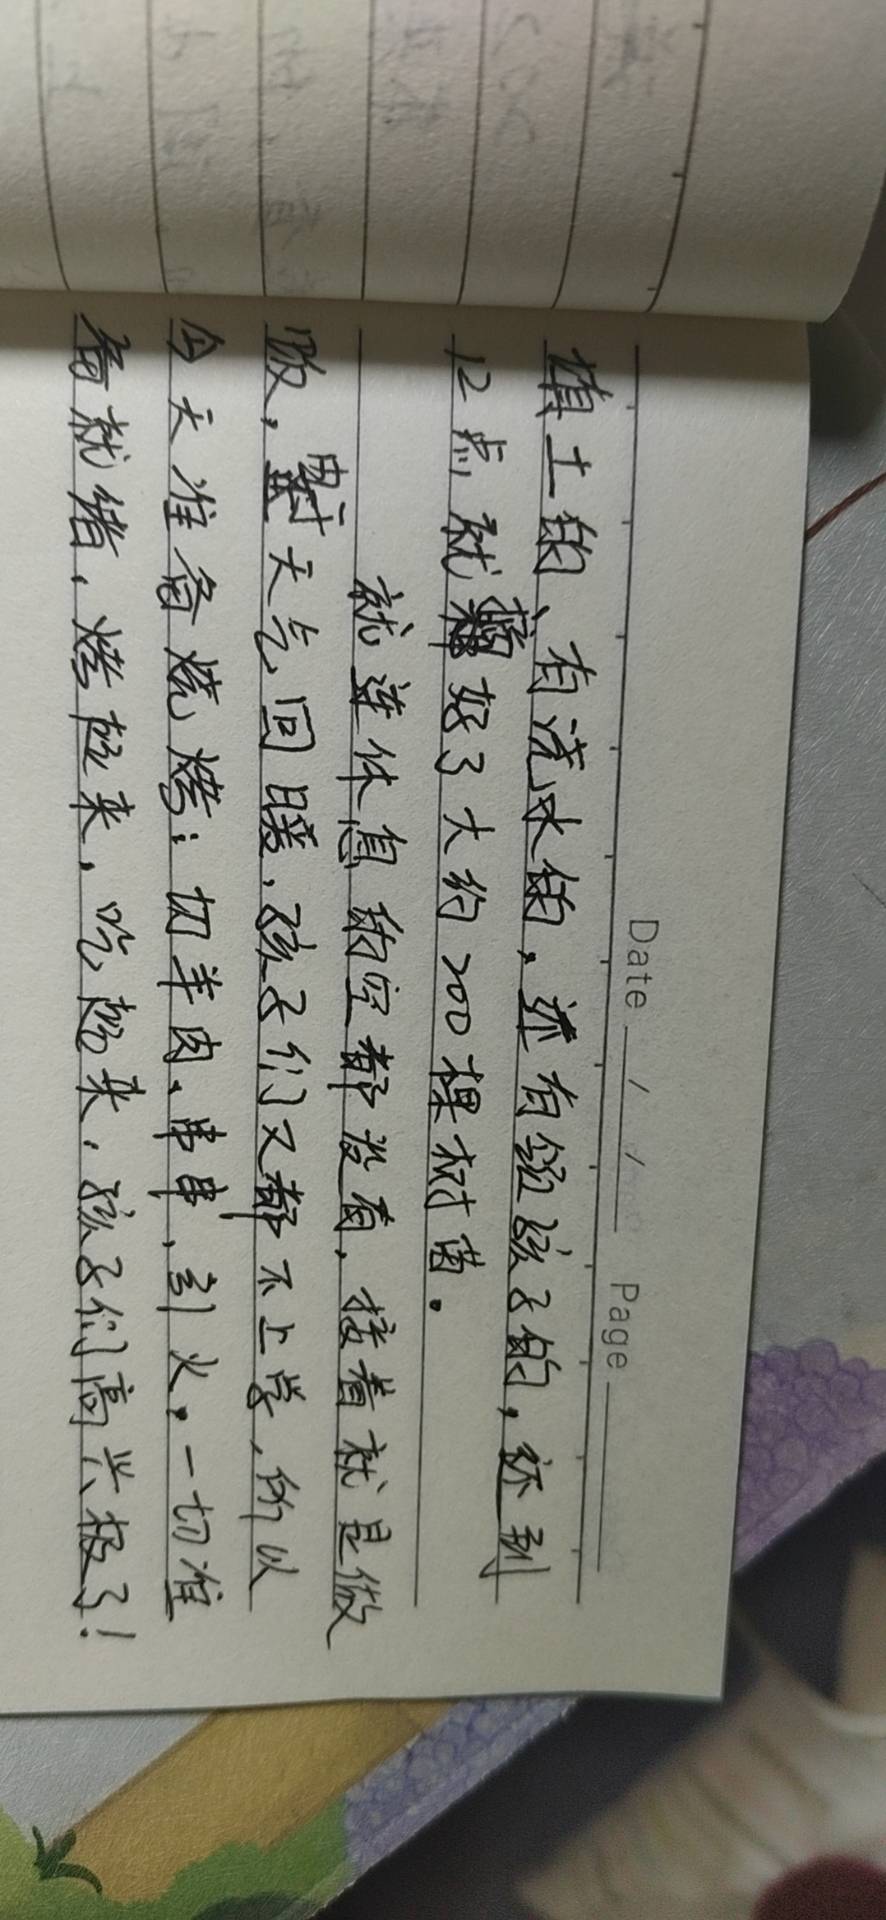 Date / / Page
填土的、有浇水的，还有领孩子的，还到
12点就好了大约200棵树苗。
就连休息的空都没有，接着就是做
饭，天气回暖，孩子们又都不上学，所以
今天准备烧烤：切羊肉、串串、引火。一切准
备就绪，烤起来，吃起来，孩子们高兴极了！